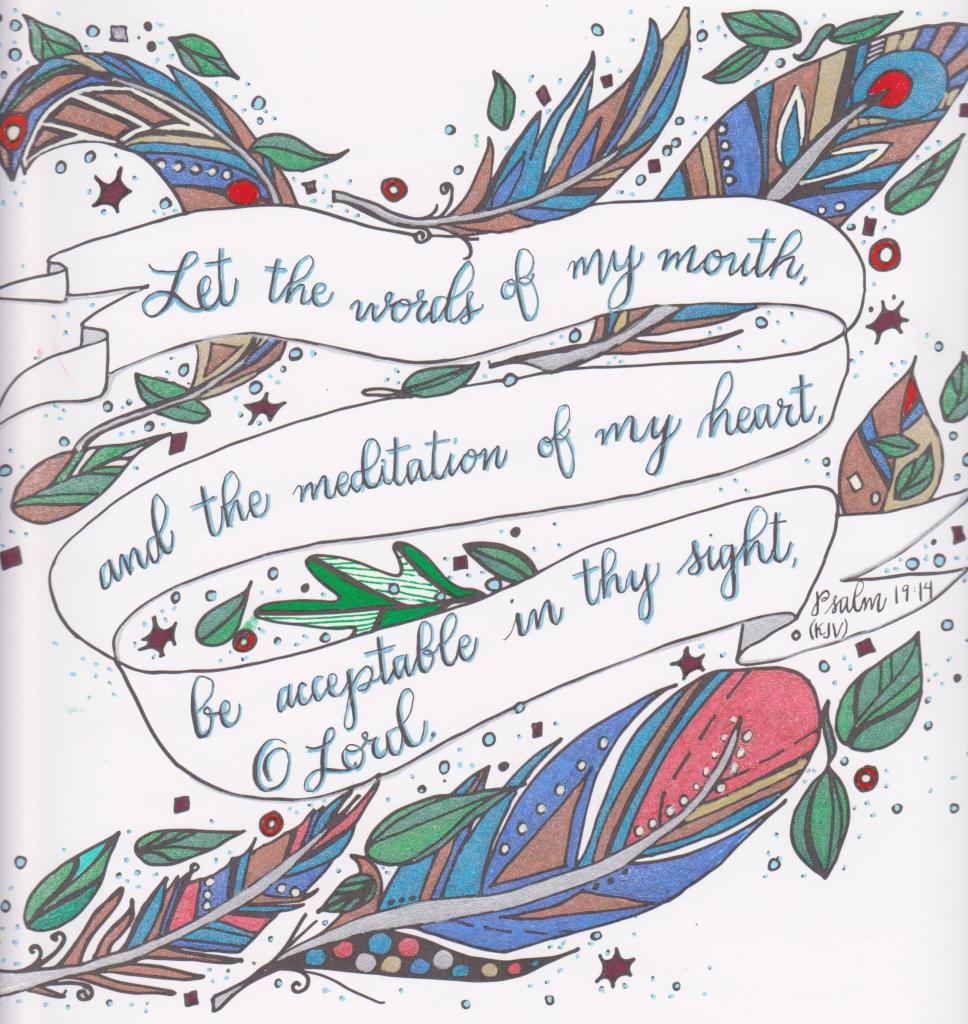 Let the words of my mouth,
and the meditation of my heart,
be acceptable in thy sight,
O Lord.
Psalm 19:14
(KJV)